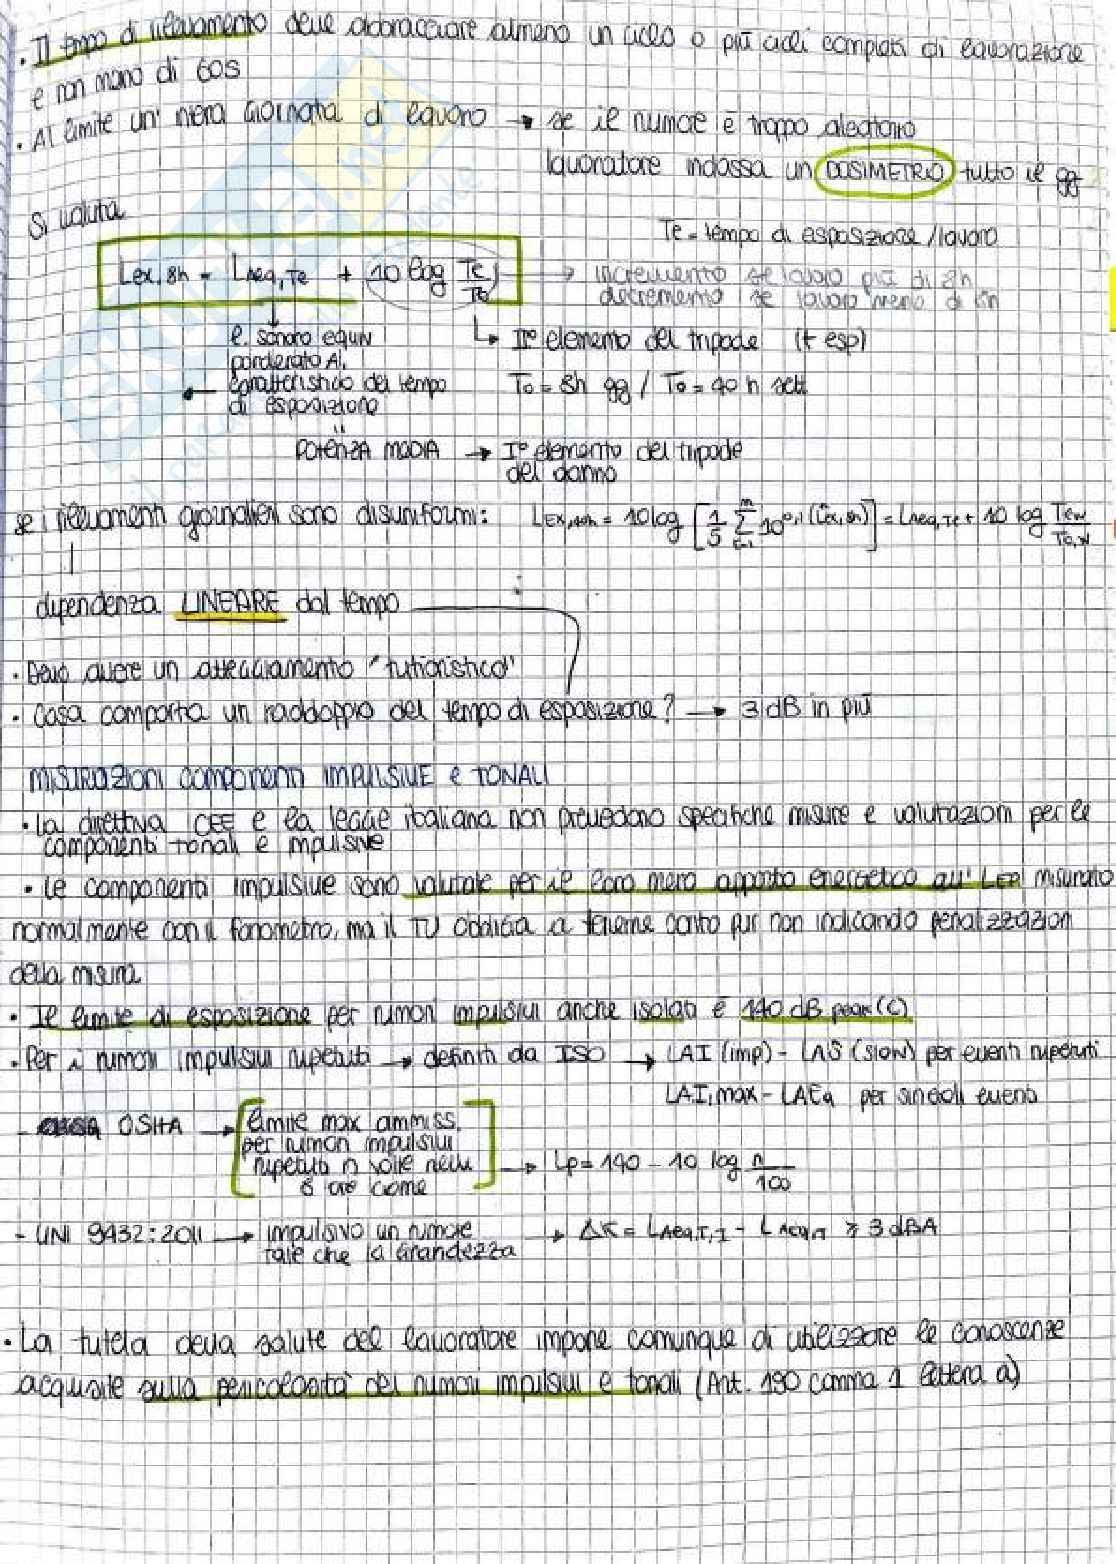 • Il tempo di rilevamento deve abbracciare almeno un ciclo o più cicli completi di lavorazione
e non meno di 60s
• Al limite un' intera giornata di lavoro → se il rumore è troppo aleatorio
lavoratore indossa un DOSIMETRO tutto il gg
Si valuta
Te = tempo di esposizione/lavoro
Lex,8h = LAeq,Te + 10 log Te/To → incremento se lavoro più di 8h
decremento se lavoro meno di 8h
l. sonoro equiv
ponderato A,
caratteristico del tempo
di esposizione
↳ IIº elemento del tripode (t esp)
To = 8h gg / To = 40 h sett
"
POTENZA MEDIA → Iº elemento del tripode
del danno
se i rilevamenti giornalieri sono disuniformi: LEX,40h = 10 log [1/5 Σ 10^0,1 (Lex,8h)] = LAeq,Te + 10 log Tew/To,w
dipendenza LINEARE dal tempo
• Devo avere un atteggiamento "tutioristico"
• Cosa comporta un raddoppio del tempo di esposizione? → 3 dB in più
MISURAZIONI COMPONENTI IMPULSIVE e TONALI
• La direttiva CEE e la legge italiana non prevedono specifiche misure e valutazioni per le
componenti tonali e impulsive
• Le componenti impulsive sono valutate per il loro mero apporto energetico all' Lep misurato
normalmente con il fonometro, ma il TU obbliga a tenerne conto pur non indicando penalizzazioni
della misura
• Il limite di esposizione per rumori impulsivi anche isolati è 140 dB peak (C)
• Per i rumori impulsivi ripetuti → definiti da ISO → LAI (imp) - LAS (slow) per eventi ripetuti
LAI,max - LAEq per singoli eventi
- OSHA → limite max ammiss.
per rumori impulsivi
ripetuti n volte nelle
8 ore come
→ Lp = 140 - 10 log n/100
- UNI 9432:2011 → impulsivo un rumore
tale che la grandezza
→ ΔK = LAeq,T,I - LAeq,T ≥ 3 dBA
• La tutela della salute del lavoratore impone comunque di utilizzare le conoscenze
acquisite sulla pericolosità dei rumori impulsivi e tonali (Art. 190 comma 1 lettera a)